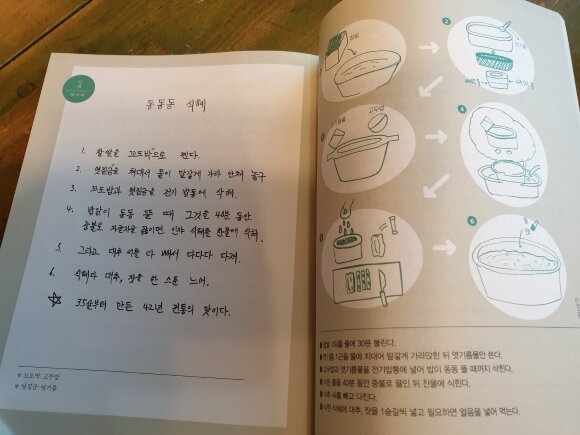 동동동 식혜
1. 찹쌀을 꼬도박으로 찐다.
2. 엿질금을 치대서 물이 말갛게 가라 안쳐 놓구
3. 꼬도밥과 엿질금을 전기 밥통에 삭혀.
4. 밥알이 동동 뜰 때 그것을 40분 동안
중불로 자글자글 끓이면, 인자 식혜를 찬물에 식혀.
5. 그러고, 대추 씨를 다 빼서 다다다다 다져.
6. 식혜다 대추, 잣을 한 스푼 느어.
☆ 35살부터 만든 42년 전통의 맛이다.
* 꼬도박: 고두밥
* 엿질금: 엿기름
찹쌀
2
엿기름
엿기름물
고두밥
4
6
찹쌀 1되를 물에 30분 불린다.
엿기름 1근을 물에 치대어 말갛게 가라앉힌 뒤 엿기름물만 쓴다.
고두밥과 엿기름물을 전기밥통에 넣어 밥이 동동 뜰 때까지 삭힌다.
삭힌 물을 40분 동안 중불로 끓인 뒤 찬물에 식힌다.
대추 씨를 빼고 다진다.
식힌 식혜에 대추, 잣을 1숟갈씩 넣고 필요하면 얼음을 넣어 먹는다.